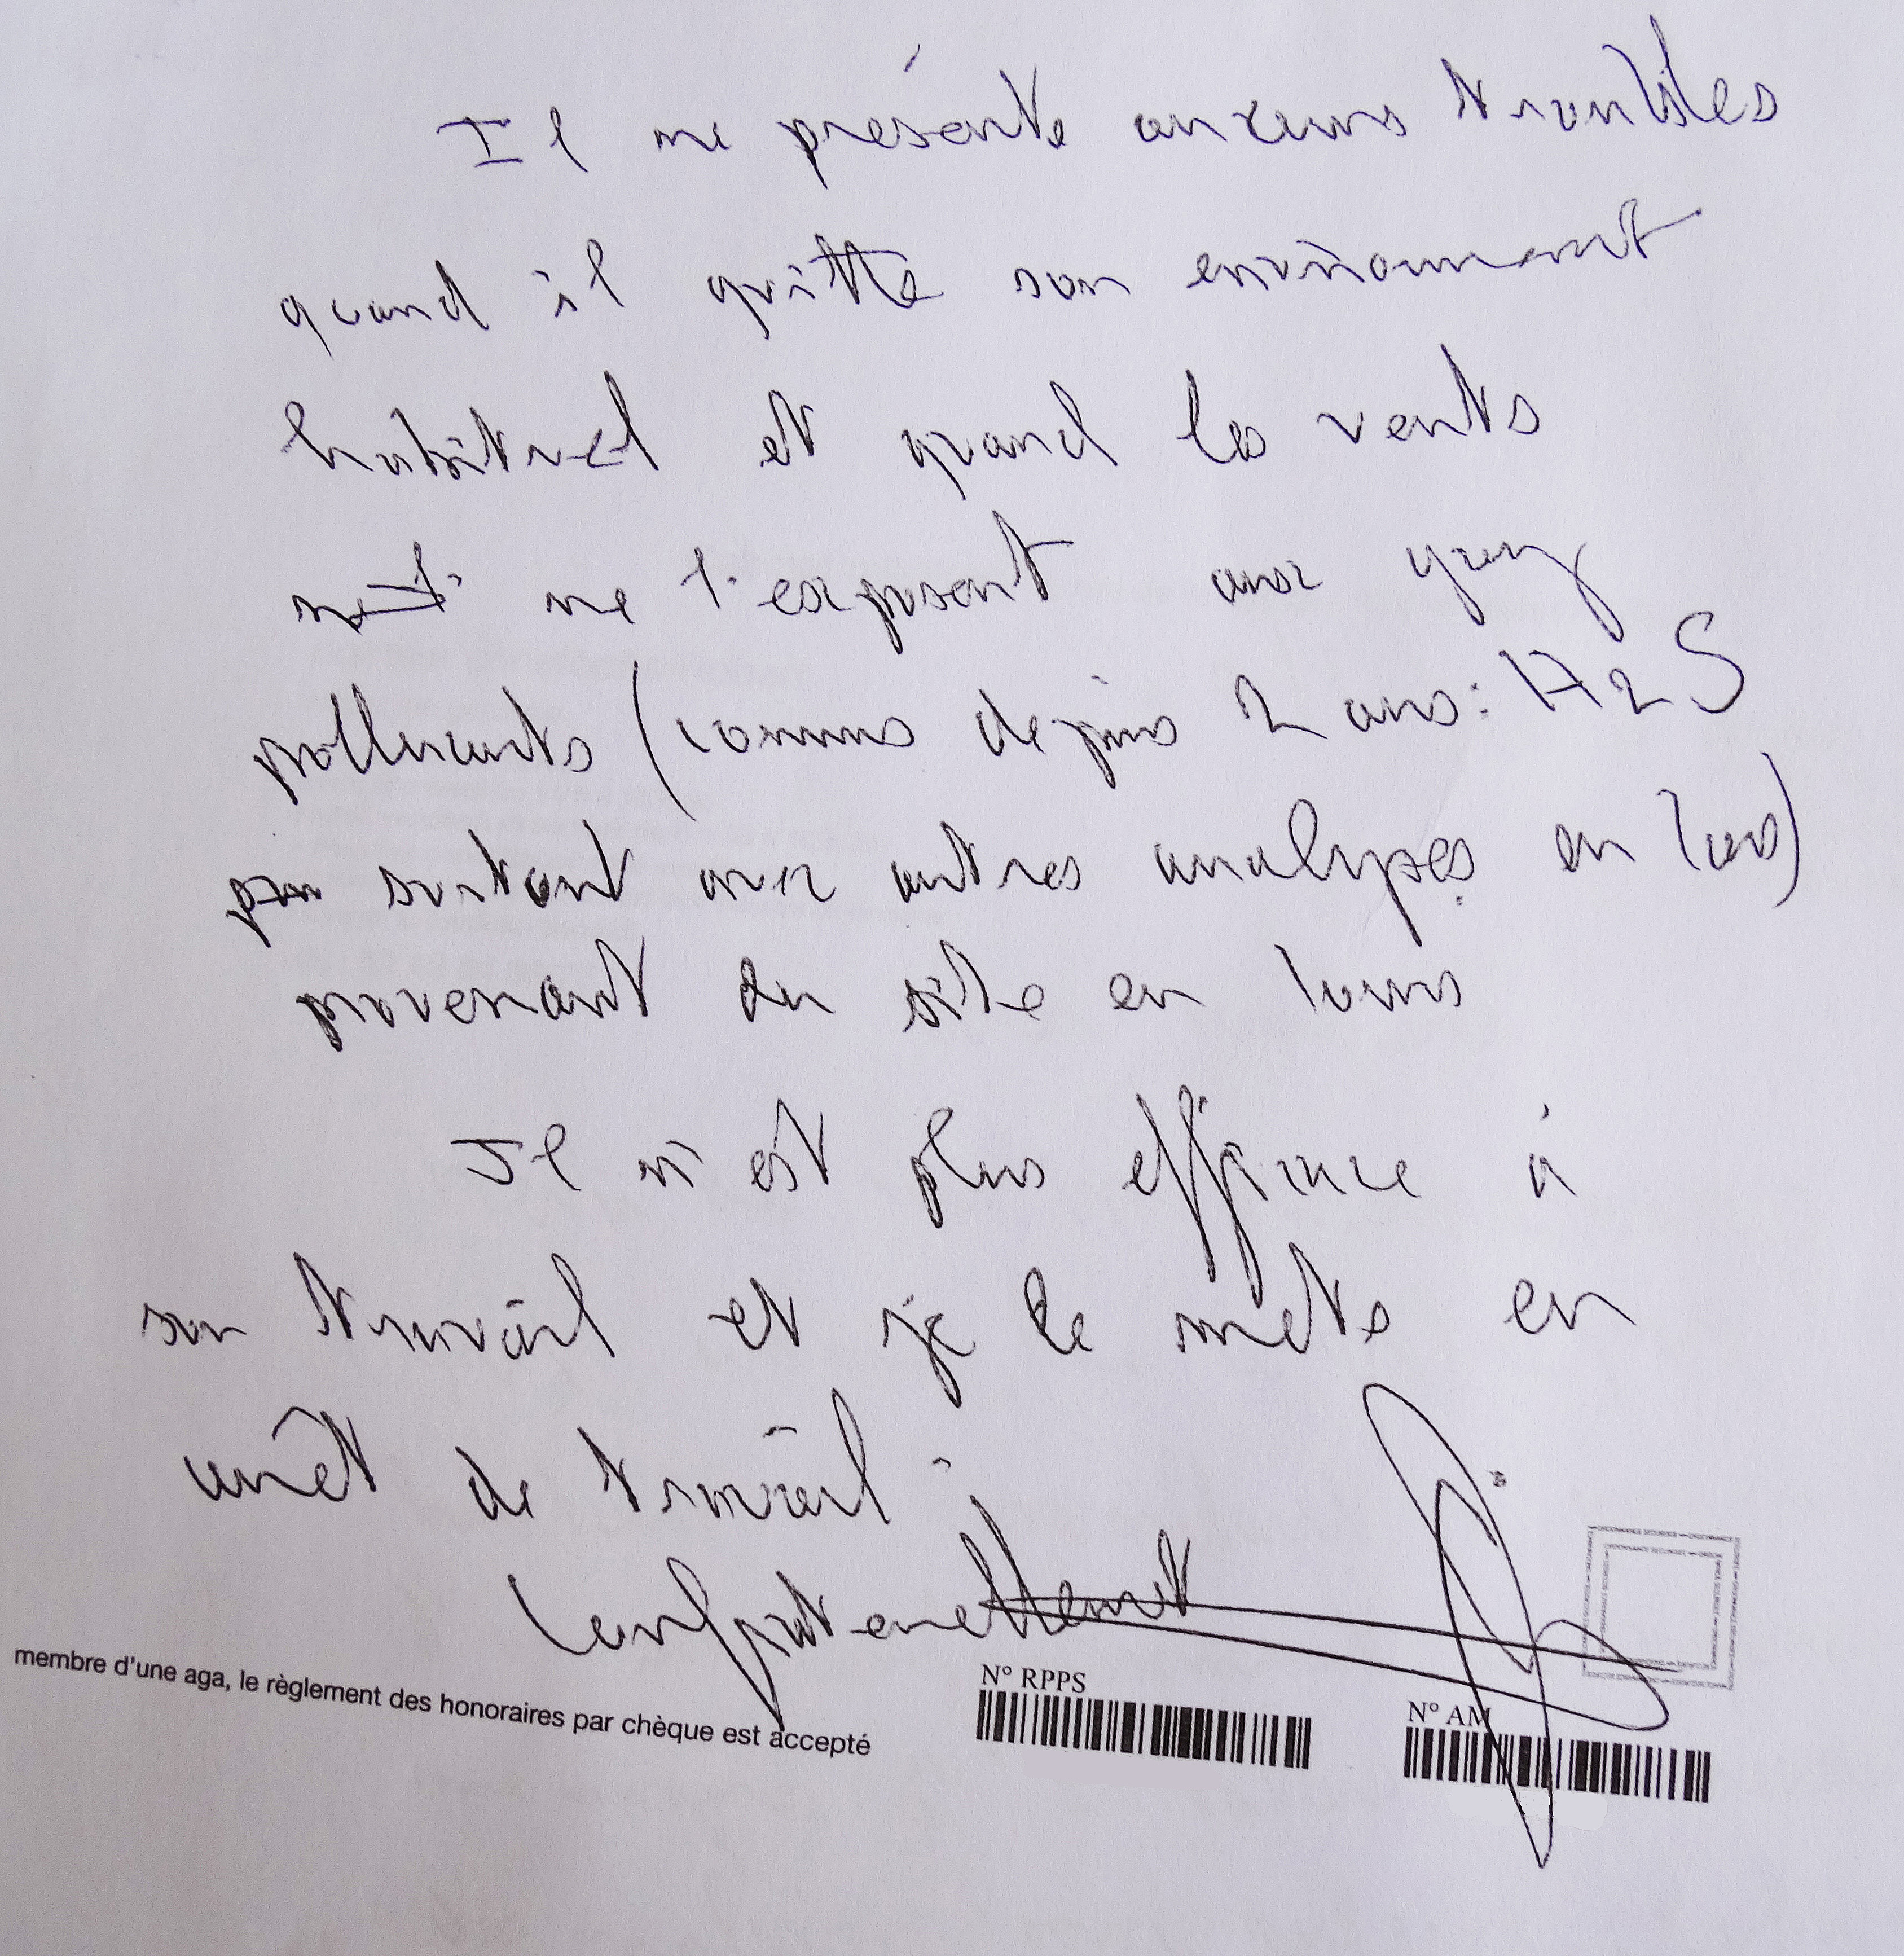 Il ne présente aucuns troubles
quand il quitte son environnement
habituel et quand les vents
ne l'exposent aux gaz
polluants (connus depuis 2 ans : H2S
surtout avec autres analyses en cours)
provenant du site en cours
Il n'est plus efficace à
son travail et je le mets en
arrêt de travail.
Confraternellement
membre d'une aga, le règlement des honoraires par chèque est accepté
N° RPPS
N° AM